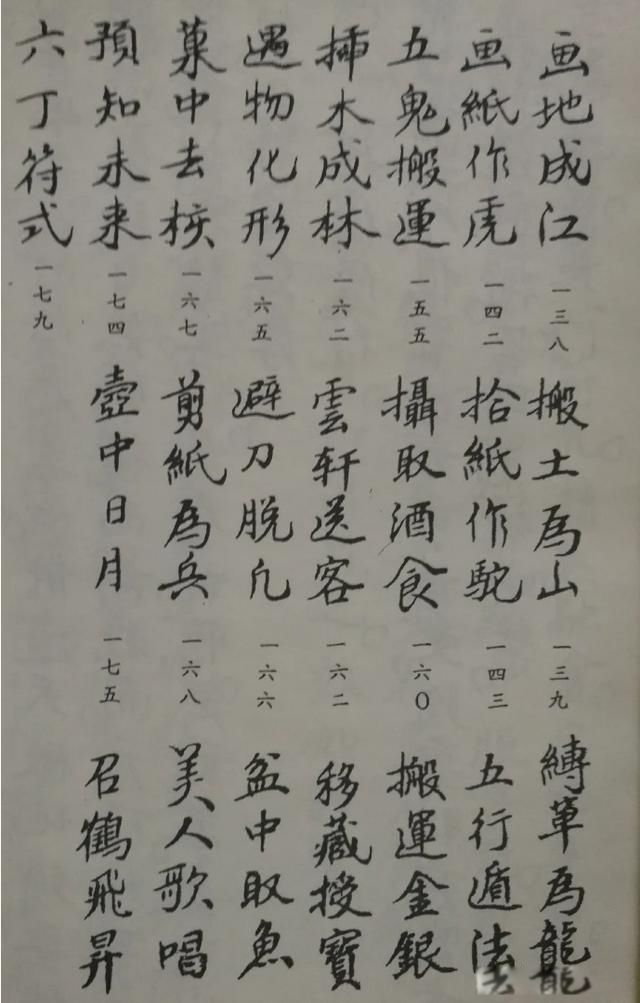 画地成江 一三八 搬土為山 一三九 縛草為龍
画紙作虎 一四二 拾紙作駝 一四三 五行遁法
五鬼搬運 一五五 攝取酒食 一六〇 搬運金銀
挿木成林 一六二 雲軒送客 一六二 移藏授寶
遇物化形 一六五 避刀脱 一六六 盆中取魚
菓中去核 一六七 剪紙為兵 一六八 美人歌唱
預知未来 一七四 壺中日月 一七五 召鶴飛昇
六丁符式 一七九